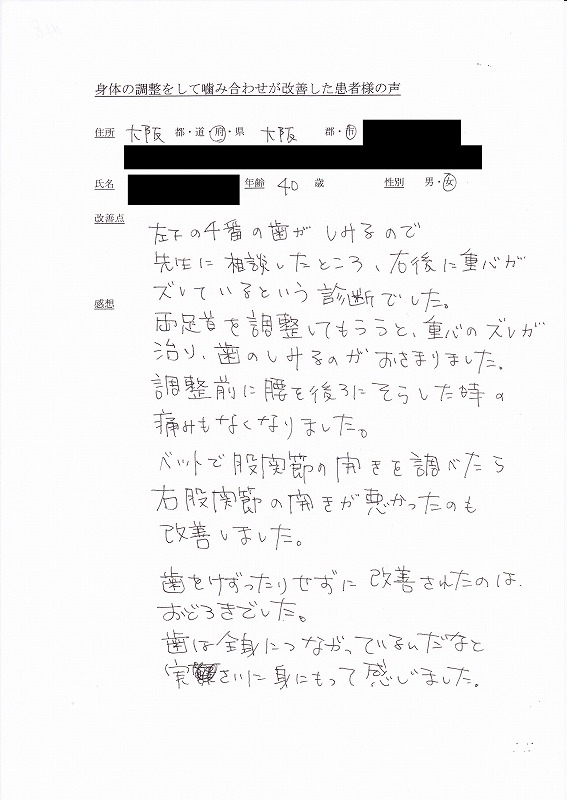 身体の調整をして噛み合わせが改善した患者様の声
住所 大阪 都・道・府・県 大阪 郡・市
氏名 年齢 40 歳 性別 男・女
改善点
感想
左下の4番の歯がしみるので
先生に相談したところ、右後に重心が
ズレているという診断でした。
両足首を調整してもらうと、重心のズレが
治り、歯のしみるのがおさまりました。
調整前に腰を後ろにそらした時の
痛みもなくなりました。
ベットで股関節の開きを調べたら
右股関節の開きが悪かったのも
改善しました。
歯をけずったりせずに改善されたのは、
おどろきでした。
歯は全身につながっているんだなと
実さいに身にもって感じました。